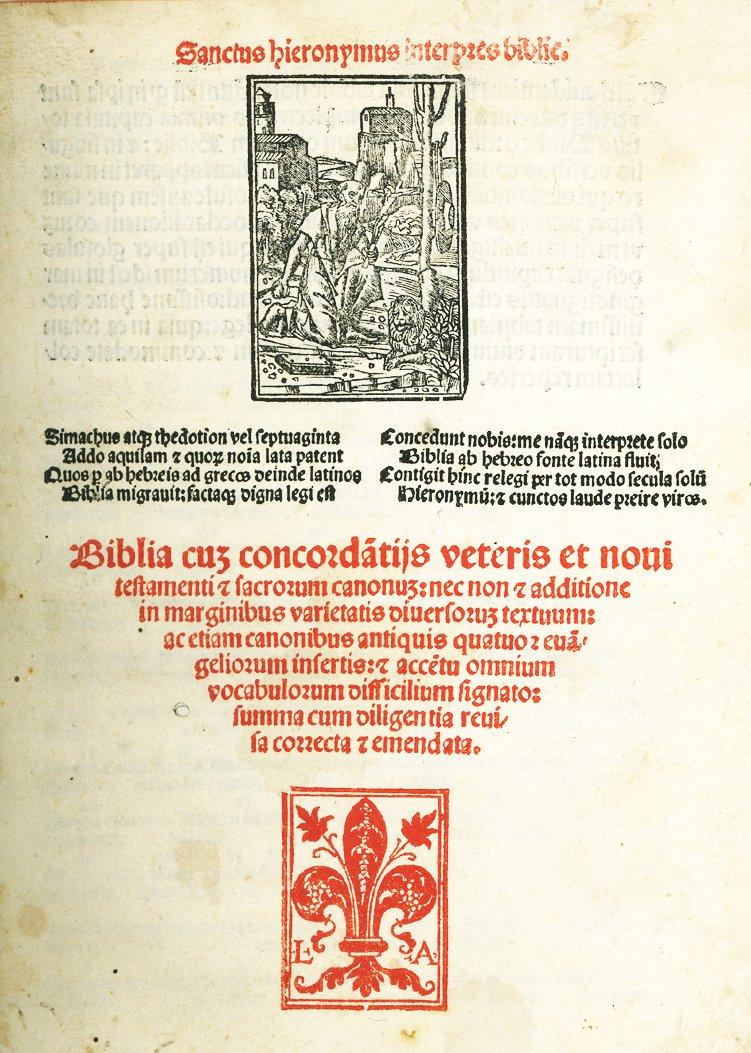 Sanctus hieronymus interpres biblie.
Simachus atqꝫ thedotion vel septuaginta
Addo aquilam ⁊ quoꝝ noīa lata patent
Quos ꝑ ab hebreis ad grecos deinde latinos
Biblia migrauit: factaqꝫ digna legi est
Concedunt nobis: me nāqꝫ interprete solo
Biblia ab hebreo fonte latina fluit;
Contigit hinc relegi per tot modo secula solū
Hieronymū: ⁊ cunctos laude preire viros.
Biblia cuꝫ concordātijs veteris et noui
testamenti ⁊ sacrorum canonuꝫ: nec non ⁊ additione
in marginibus varietatis diuersoruꝫ textuum:
ac etiam canonibus antiquis quatuor euā-
geliorum insertis: ⁊ accētu omnium
vocabulorum difficilium signato:
summa cum diligentia reui/
sa correcta ⁊ emendata.
L A